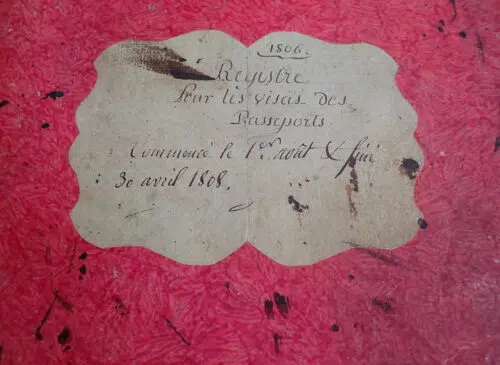 1806.
Registre
Pour les visas des
Passeports
Commencé le 1er. août & fini
30 avril 1808.